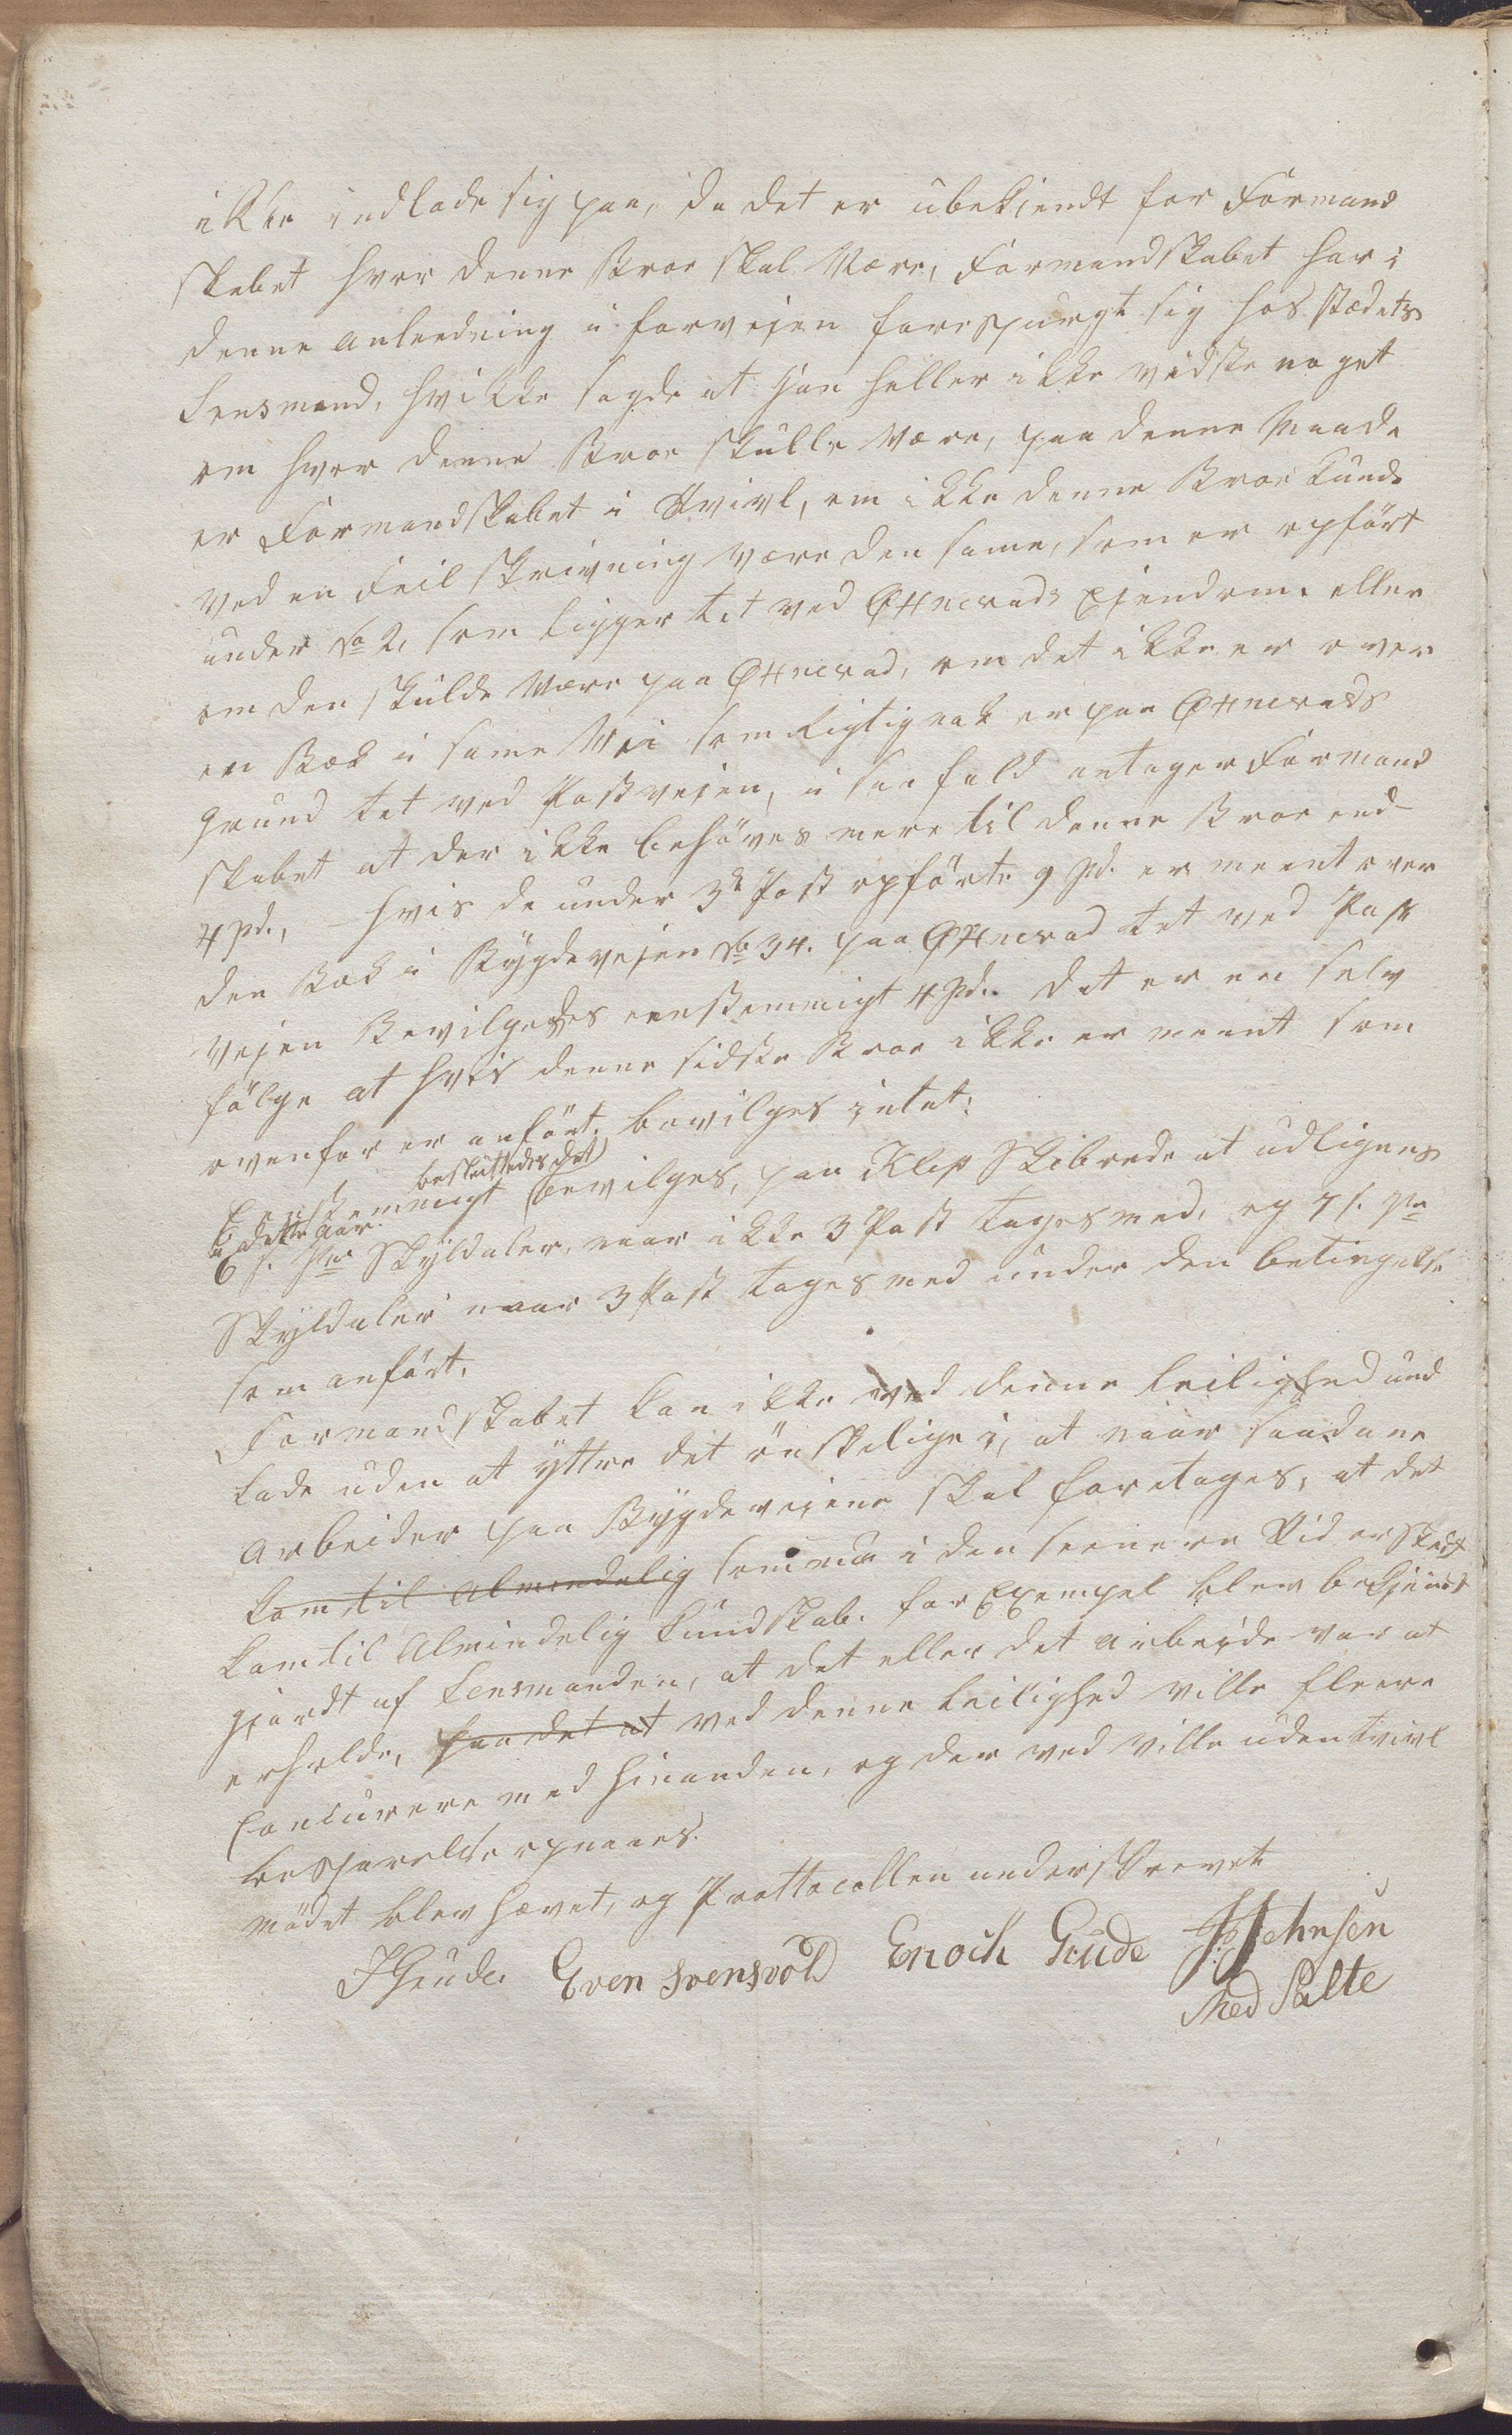 ikke indlade sig paa, da det er ubekjendt for Formand
skabet hvor denne Broe skal Være, Formandskabet har i
denne anledning i forvejen forespurgt sig hos stædets
Lensmand, hvilke sagde at han heller ikke vidste noget
om hvor denne Broe skulle Være, paa denne Maade
er Formandskabet i Tvivl, om ikke denne Broe kunde
ved en Feil skrivning være den same, som er opført
under No 2, som ligger tæt ved Ottnerads Ejendom. eller
om den skulde Være paa Ottnerad, om det ikke er over
en Bæk i same Vei som Rigtig nok er paa Ottnerads
grund tet ved Postvejen, i saa fald antager Formand
skabet at der ikke behøves mere til denne Broe end
4 pd., – hvis de under 3de Post opførte 9 pd. er meent over
den Bæk i Bygdevejen No 34. paa Ottnerad tet ved Post
Vejen Bevilgedes eenstemmigt 4 pd. det er en selv
følge at hvis denne sidste Broe ikke er meent som
ovenfor er anført, bevilges intet:
besluttedes det
Eenstemmigt bevilges, paa Klep Skibrede at udlignes
i dette Aar.
6 s. Pr Skyldaler, naar ikke 3 Post tages med, og 7 s. Pr
Skyldaler naar 3 Post tages med under den betingelse
som anført,
Formandskabet kan ikke ved denne leilighed und
lade uden at yttre det ønskelige i, at naar saadane
Arbeider paa Bygdeveiene skal foretages, at det
kom til Almindelig som ma i den seenere Tid er skedt
kom til Almindelig kundskab. for Exempel blev bekjendt
gjordt af Lensmanden, at det eller det arbeide var at
erholde, paa det at ved denne leilighed ville fleere
Concurere med hinanden, og der ved ville uden tvivl
besparelse opnaaes.
Mødet blev hævet, og Prottocollen underskrevet
JGude. Even Svensvold Enoch Gude JJohnsen
Med Salte